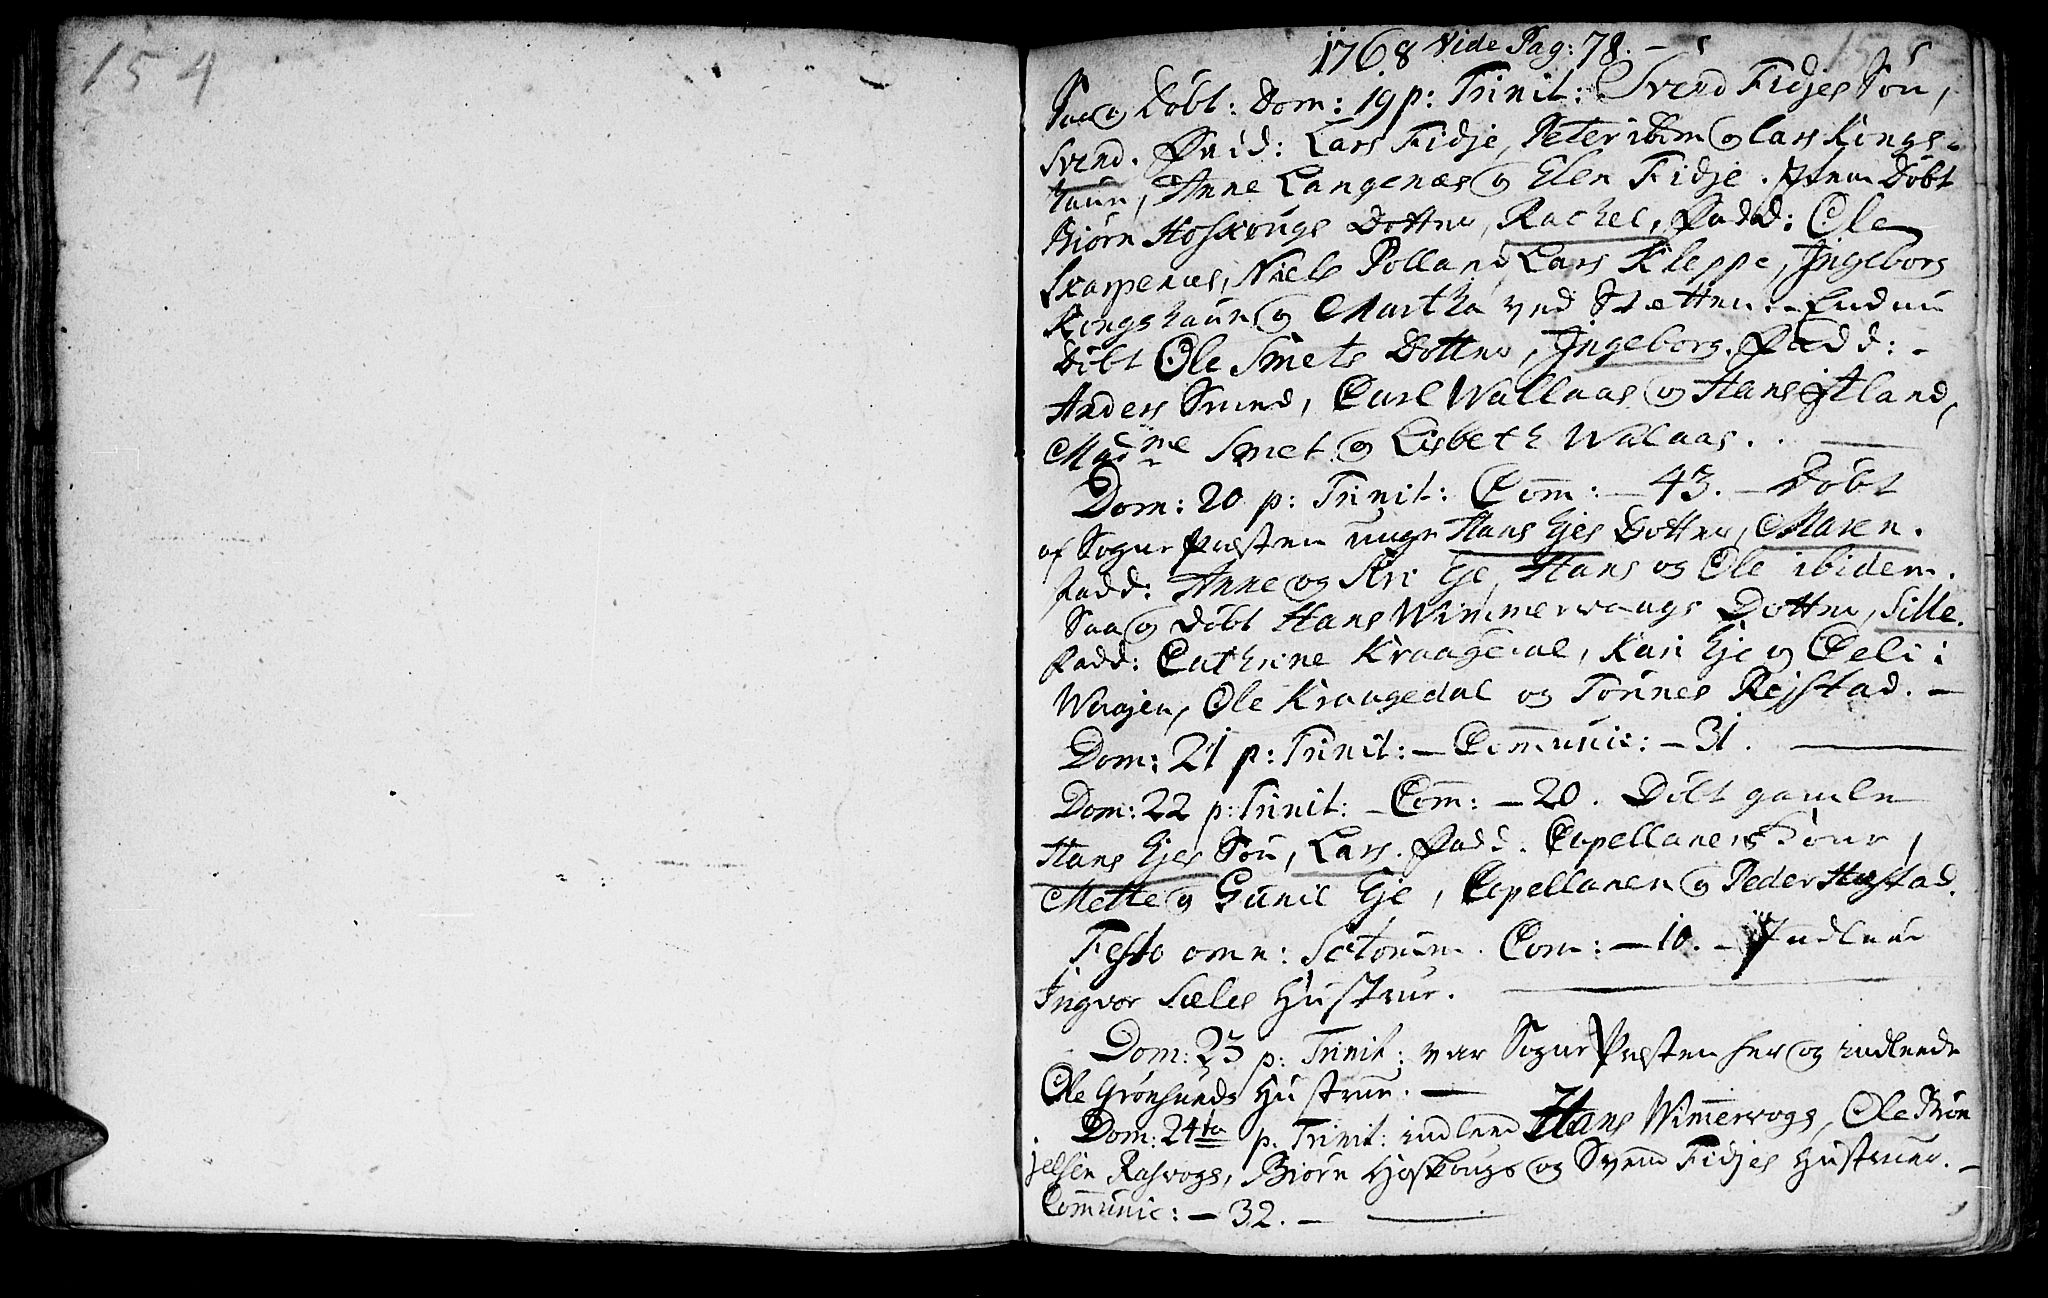 154
1768 Vide Pag: 78. -
15
Saa og Døbt: Dom: 19 p: Trinit: Svend Fidjes Søn,
Svend. Fad: Lars Fidje, Peter ibm og Lars Kings-
haun, Anne Langenæs og Elen Fidje. Item Døbt
Biørn Hoskougs Dotter, Rachel, Fadd: Ole
Skarpenæs, Niels Polland, Lars Kleppe, Ingeborg
Kongshaun og Martha ved Sletten. - Endnu
Døbt Ole Smets Dotter, Ingeborg. Fadd: -
Anders Smed, Carl Wallaas og Hans Øtland,
Mad:me Smet og Lisbeth Walaas. . -
Dom: 20 p: Trinit: Com: - 43. - Døbt
af Sogne Præsten unge Hans Ejes Dotter, Maren.
Fadd: Anne og Siri Eje, Hans og Ole ibidem.
Saa og Døbt Hans Wimmerwaags Dotter, Sille.
Fadd: Cathrine Kraagedal, Kari Eje og Celi:
Werajen, Ole Kraagedal og Tønnes Rejstad. -
Dom: 21 p: Trinit: - Communic: - 31. -
Dom: 22 p: Trinit: - Com: - 20. Døbt gamle
Hans Ejes Søn, Lars. Fadd. Capellanens Kone,
Mette og Gunil Eje, Capellanen og Peder Hustad.
Festo omn: Sctorum. Com: - 10. - Indleed
Ingvor Sæles Hustrue. -
Dom: 23 p: Trinit: var Sogne Præsten her og indleede
Ole Grønsunds Hustrue. -
Dom: 24ta p. Trinit: indleed Hans Wimmervogs, Ole Brøn
jelsen Rasvogs, Biørn Hoskougs og Svend Fidjes Hustruer. -
Communic: - 32. - -